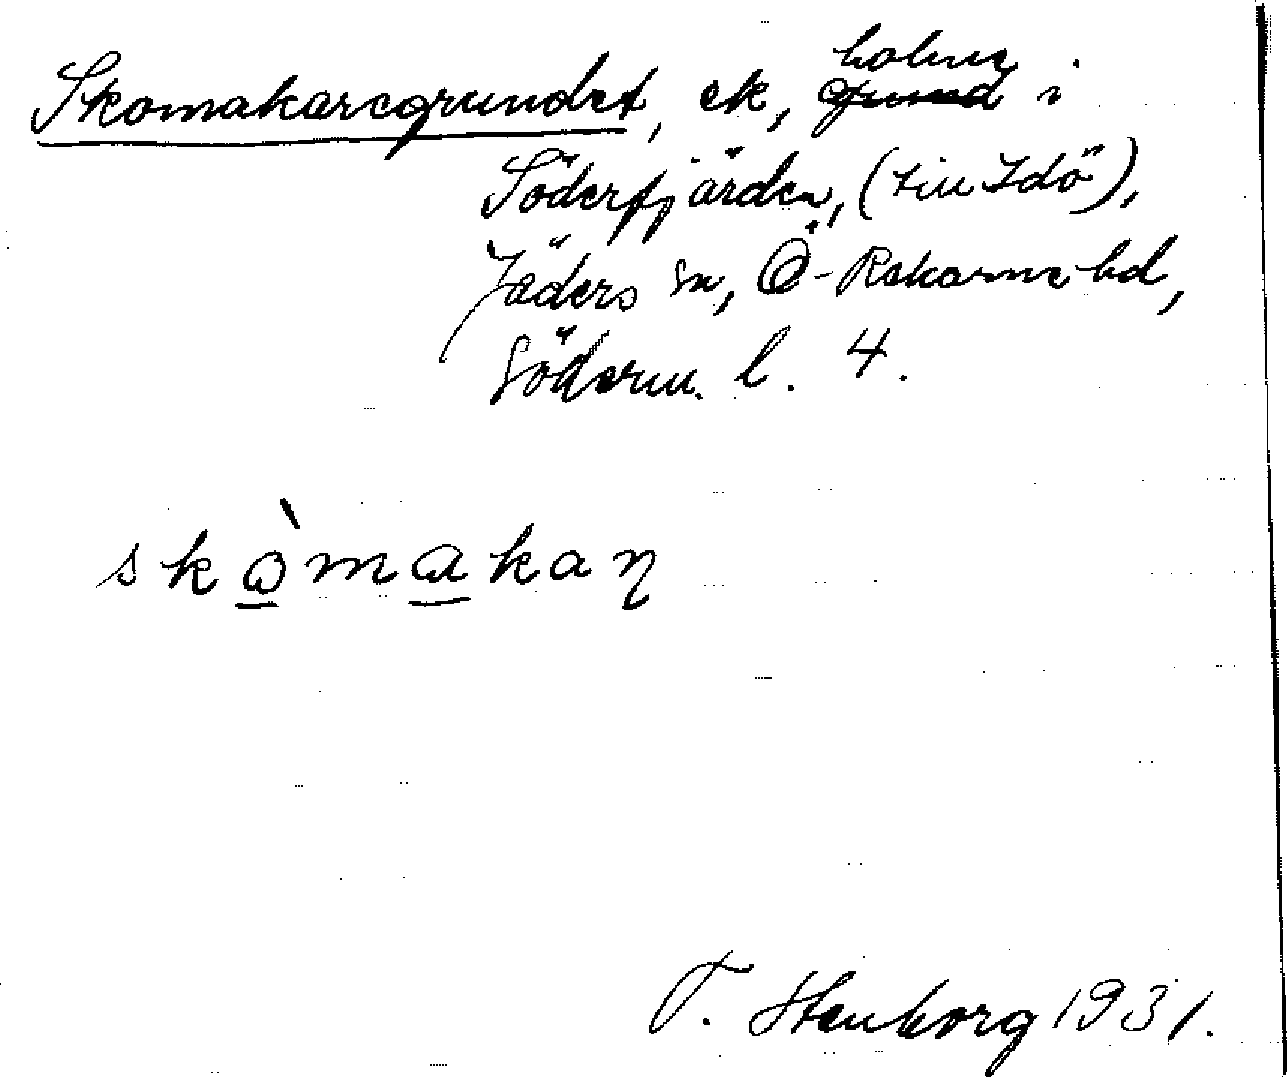 Skomakaregrundet, ek, holme i
Söderfjärden, (till Idö),
Jäders sn, Ö-Rekarne hd,
Söderm. l. 4.
skòmakaη
T. Stenborg 1931.